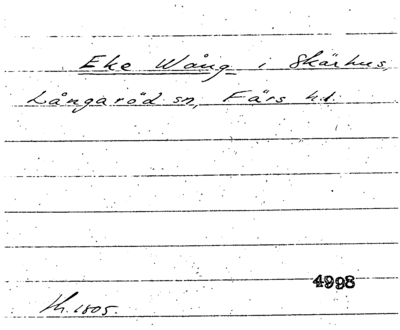 Eke Wång i Skärhus,
Långaröd sn, Färs hd.
4998
Th. 1805.